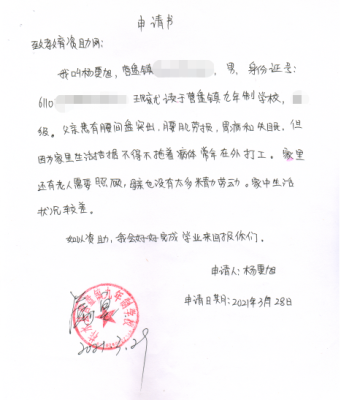 申请书
致教育资助网:
我叫杨更旭,曹盘镇 男,身份证号:
6110 现就读于曹盘镇九年制学校,
级。父亲患有腰间盘突出,腰肌劳损,胃病和失眠,但
因为家里生活拮据不得不拖着病体常年在外打工。家里
还有老人需要照顾,母亲也没有太多精力劳动。家中生活
状况较差。
如以资助,我会好好完成毕业来回报你们。
申请人:杨更旭
申请日期:2021年3月28日
九年制学校
2021.3.29